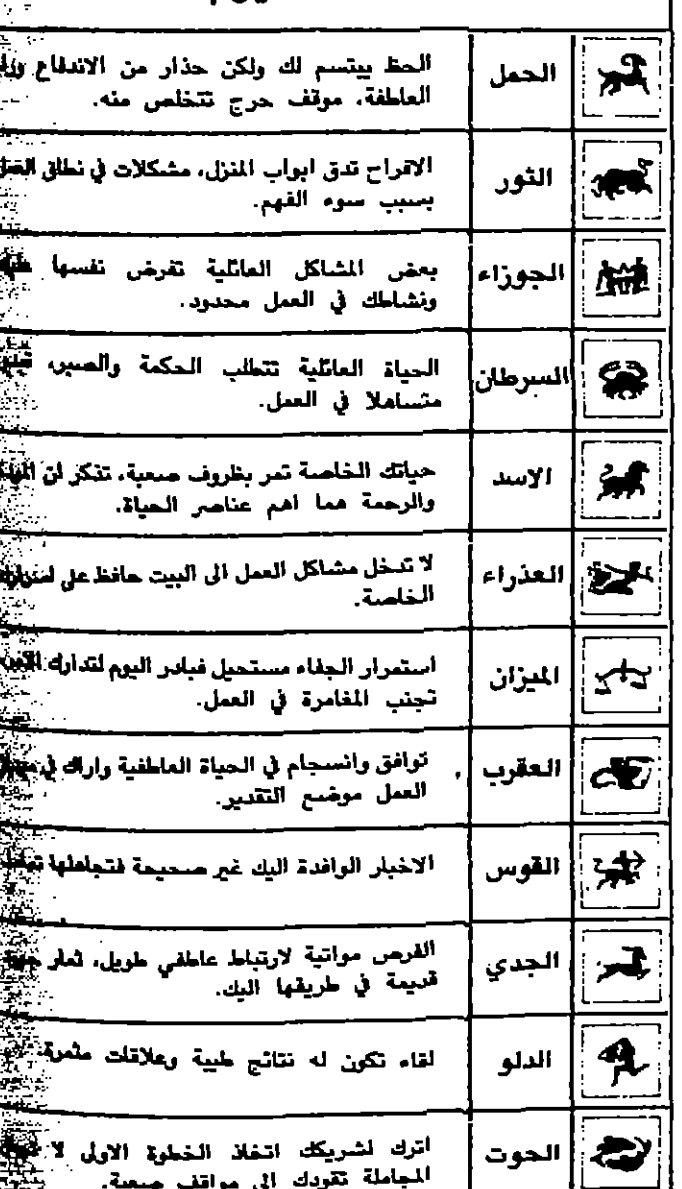 الحمل
الحظ يبتسم لك ولكن حذار من الاندفاع
العاطفة، موقف حرج تتخلص منه.
الثور
الافراح تدق ابواب المنزل، مشكلات في نطاق العمل
بسبب سوء الفهم.
الجوزاء
بعض المشاكل العائلية تفرض نفسها
ونشاطك في العمل محدود.
السرطان
الحياة العائلية تتطلب الحكمة والصبر،
متساهلا في العمل.
الاسد
حياتك الخاصة تمر بظروف صعبة، تذكر ان
والرحمة هما اهم عناصر الحياة.
العذراء
لا تدخل مشاكل العمل الى البيت حافظ على
الخاصة.
الميزان
استمرار الجفاء مستحيل فبادر اليوم لتدارك
تجنب المغامرة في العمل.
العقرب
توافق وانسجام في الحياة العاطفية واراك في
العمل موضع التقدير.
القوس
الاخبار الوافدة اليك غير صحيحة فتجاهلها
الجدي
الفرص مواتية لارتباط عاطفي طويل، ثمار
قديمة في طريقها اليك.
الدلو
لقاء تكون له نتائج طيبة وعلاقات مثمرة.
الحوت
اترك لشريكك اتخاذ الخطوة الاولى لا
المجاملة تقودك الى مواقف صعبة.